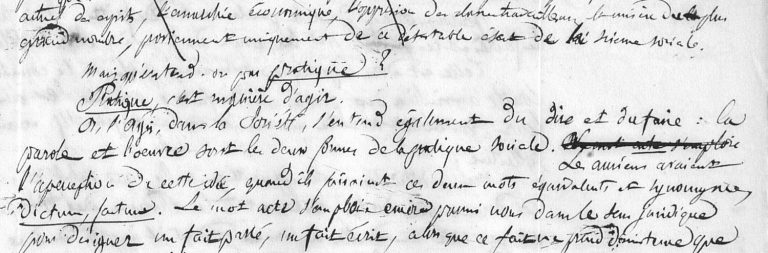 des esprits, l'anarchie économique, l'oppression des travailleurs, la misère du plus
grand nombre, proviennent uniquement de ce détestable état de la science sociale.
Mais qu'entend-on par pratique ?
Pratique, c'est manière d'agir.
Or, l'agir, dans la Société, s'entend également du dire et du faire : la
parole et l'oeuvre sont les deux formes de la pratique sociale.
Les anciens avaient
l'aperception de cette idée, quand ils faisaient ces deux mots équivalents et synonymes,
Dictum, factum. Le mot acte s'emploie encore parmi nous dans le sens juridique
pour désigner un fait passé, un fait écrit, alors que ce fait ne prend d'existence que